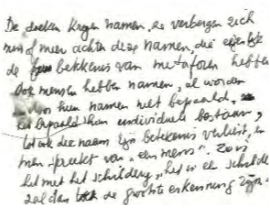 De doeken krygen namen, ze verbergen zich
men achter deze namen, die
de betekenis van metaforen hebben
Ook mensen hebben namen, al worden
hun namen niet bepaald,
bepaald hun individueel bestaan,
de naam zyn betekenis verliest, en
men spreekt van "een mens". Zo is
het met het schildery, het is een schilde
zal dan de grootste erkenning zyn.